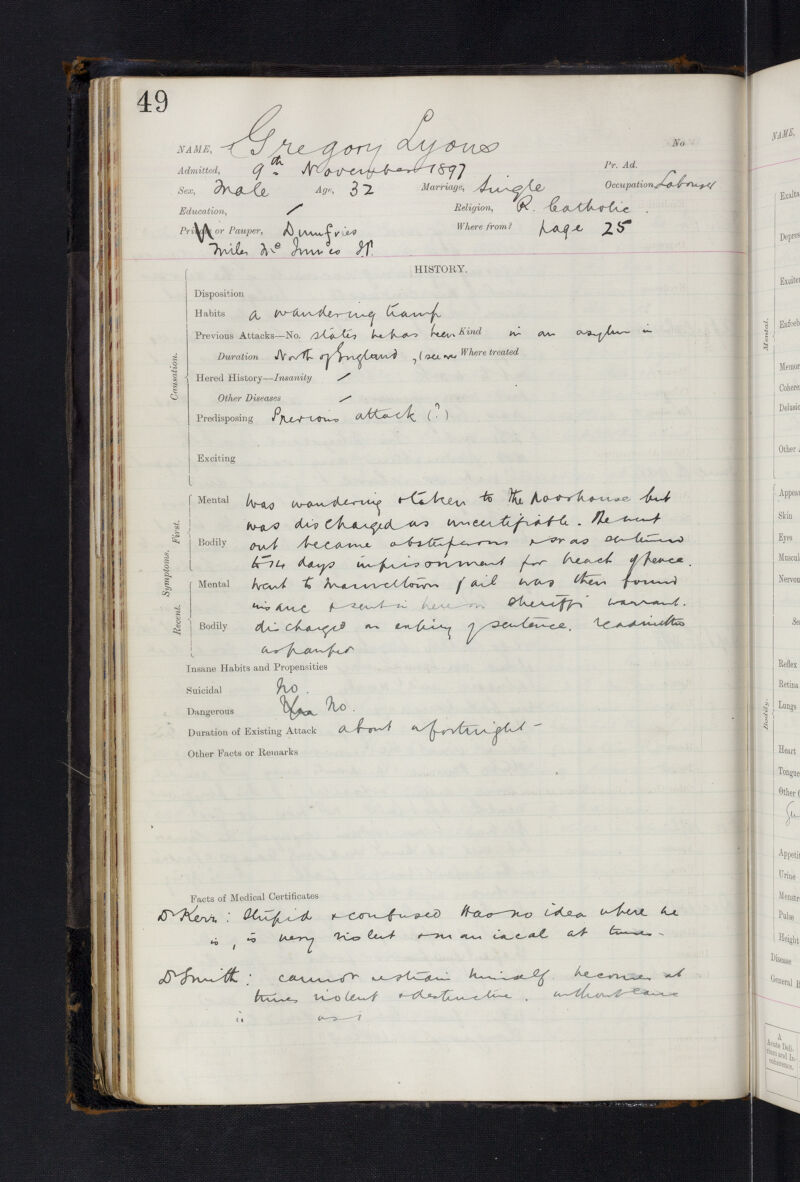 49
NAME, Gregory Lyons No
Admitted, 9th November 1897 Pr. Ad.
Sex, Male Age, 32 Marriage, Single Occupation, Labourer
Education, / Religion, R. Catholic.
Private or Pauper, Dumfries Where from? page 25
Miles Mc Innes
HISTORY.
Causation.
Disposition
Habits a wandering tramp
Previous Attacks—No. states he has been Kind in an asylum in
Duration North of England, (see Where treated
Hered History—Insanity /
Other Diseases /
Predisposing Previous attack (?)
Exciting
Symptoms.
First.
Mental Was wandering & taken to the Poorhouse but
was discharged as uncertifiable. He went
Bodily out became obstreperous & was sentenced
to 14 days imprisonment for breach of peace.
Recent.
Mental Went to Maxwelltown jail was then found
insane & sent in here on sheriff's warrant.
Bodily discharged on expiry of sentence. readmitted
as pauper
Insane Habits and Propensities
Suicidal No.
Dangerous No.
Duration of Existing Attack about a fortnight –
Other Facts or Remarks
Facts of Medical Certificates
Dr Kerr: Stupid & confused Has no idea where he
is, is very violent & maniacal at times –
Dr Smith: cannot restrain himself becomes at
times violent & destructive. without cause
NAME,
Mental.
Bodily.
Skin
Eyes
Reflex
Retina
Lungs
Heart
Tongue
Urine
Pulse
Height
Disease
A